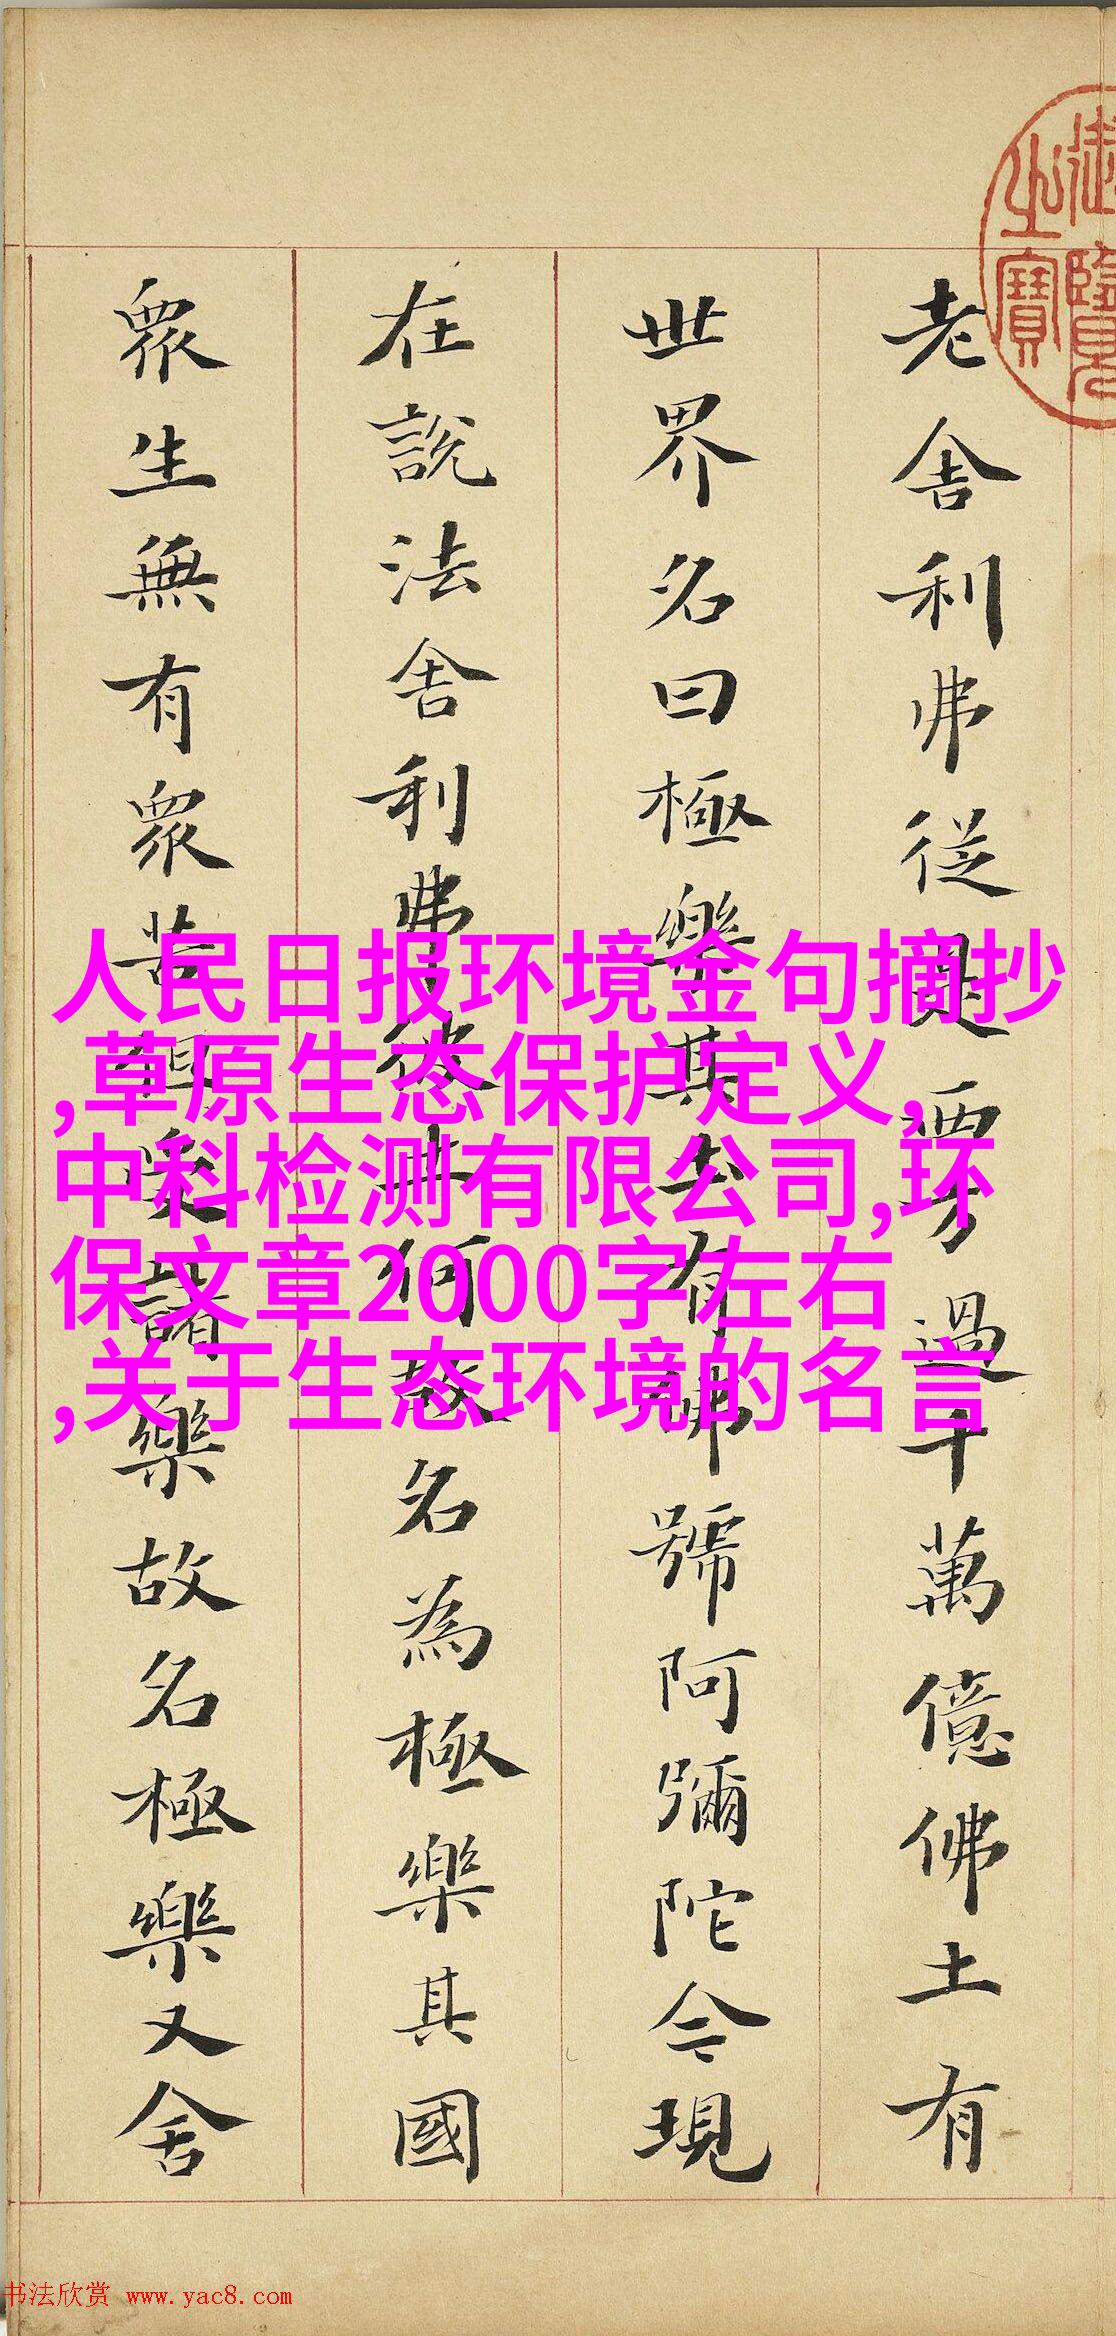 御覽
之寶
老舍利弗從是西方過十萬億佛土有
世界名曰極樂其土有佛號阿彌陀今現
在說法舍利弗彼土何故名為極樂其國
眾生無有眾苦但受諸樂故名極樂又舍
人民日报环境金句摘抄
,草原生态保护定义,
中科检测有限公司,环
保文章2000字左右
,关于生态环境的名言
书法欣赏 www.yac8.com